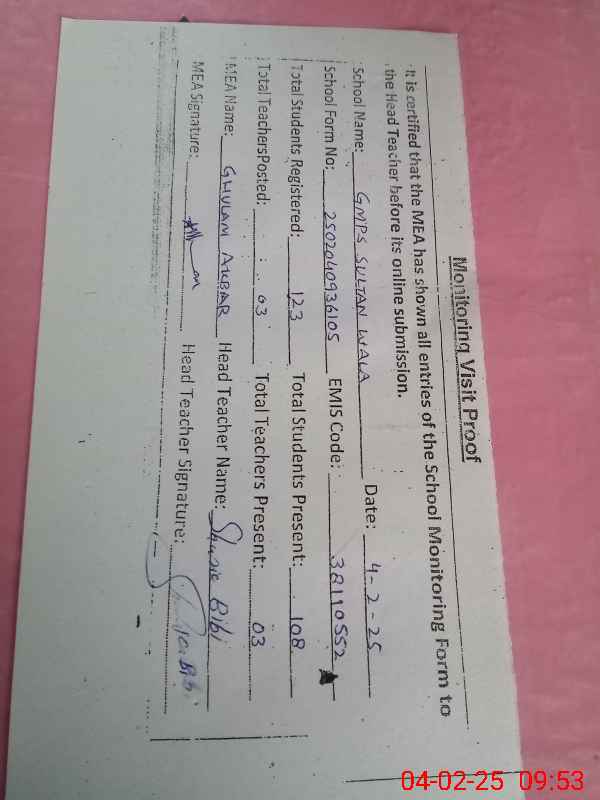 Monitoring Visit Proof
It is certified that the MEA has shown all entries of the School Monitoring Form to
the Head Teacher before its online submission.
School Name: GMPS SULTAN WALA Date: 4-2-25
School Form No: 2502040936105 EMIS Code: 38110552
Total Students Registered: 123 Total Students Present: 108
Total TeachersPosted: 03 Total Teachers Present: 03
MEA Name: GHULAM AKBAR Head Teacher Name: Bibi
MEA Signature: Head Teacher Signature:
04-02-25 09:53